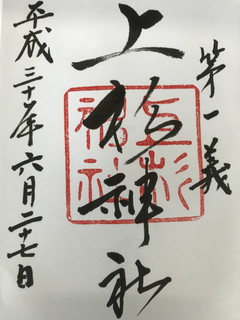 第一義
上杉神社
平成三十年六月二十七日